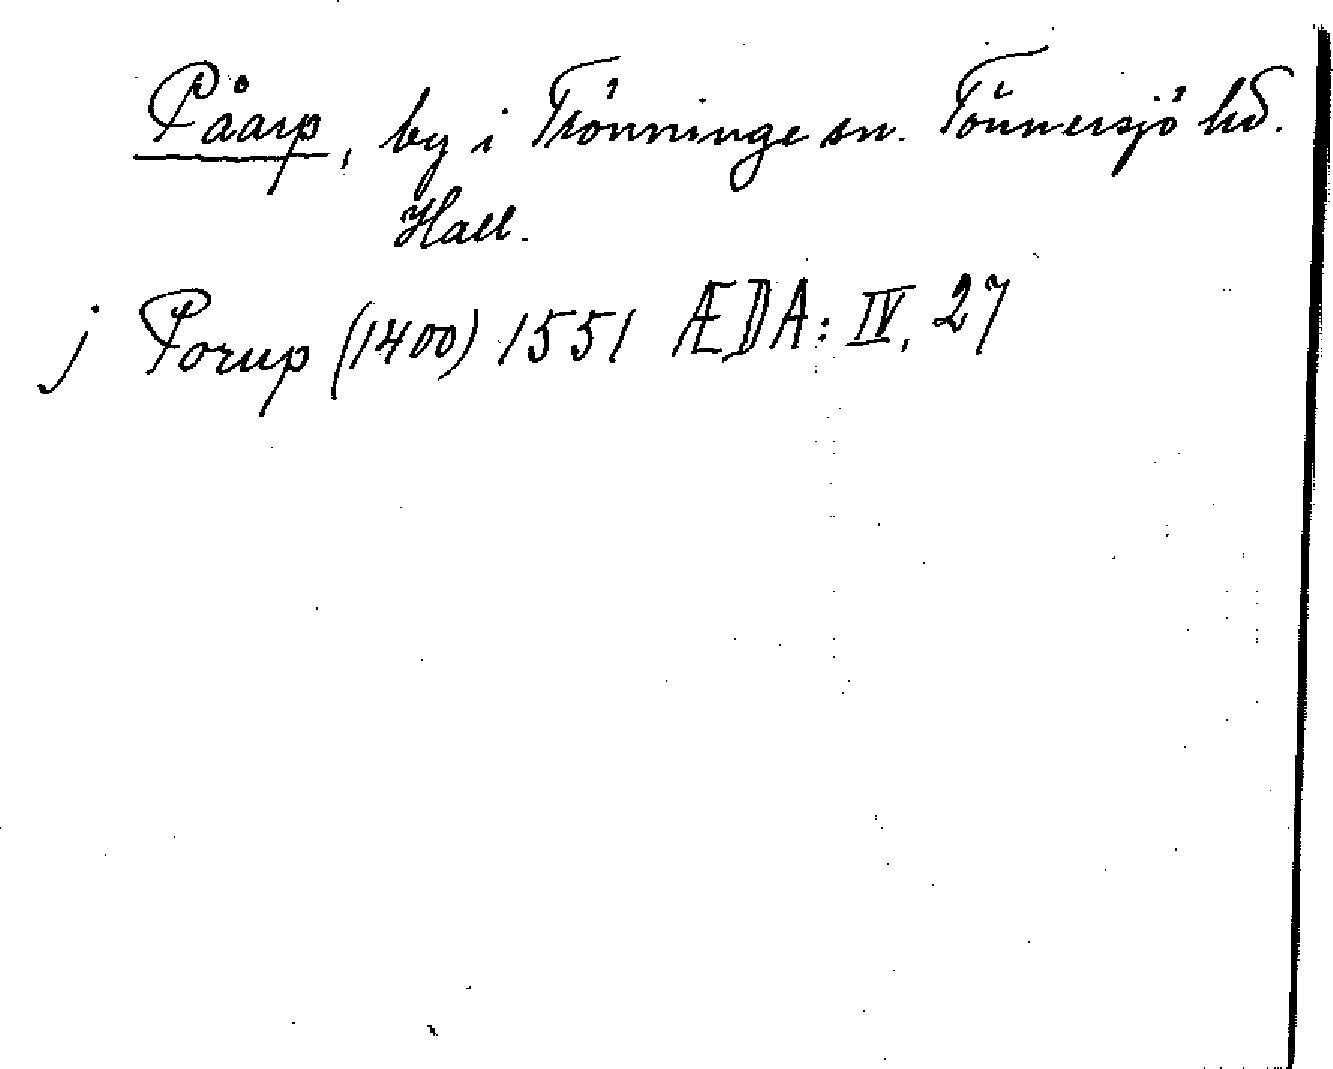 Påarp, by i Trönninge sn. Tönnersjö hd.
Hall.
j Porup (1400) 1551 ÆDA: IV, 27